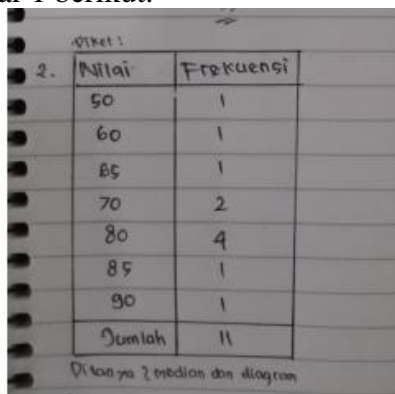 ar 1 berikut.
Diket :
2. Nilai Frekuensi
50 1
60 1
65 1
70 2
80 4
85 1
90 1
Jumlah 11
Ditanya ? median dan diagram